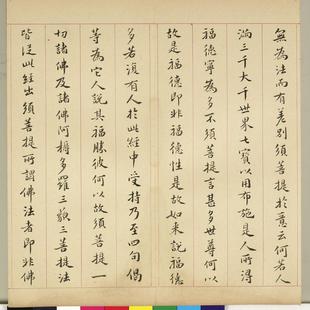 無為法而有差別須菩提於意云何若人
滿三千大千世界七寶以用布施是人所得
福德寧為多不須菩提言甚多世尊何以
故是福德即非福德性是故如來說福德
多若復有人於此經中受持乃至四句偈
等為它人說其福勝彼何以故須菩提一
切諸佛及諸佛阿耨多羅三藐三菩提法
皆從此經出須菩提所謂佛法者即非佛